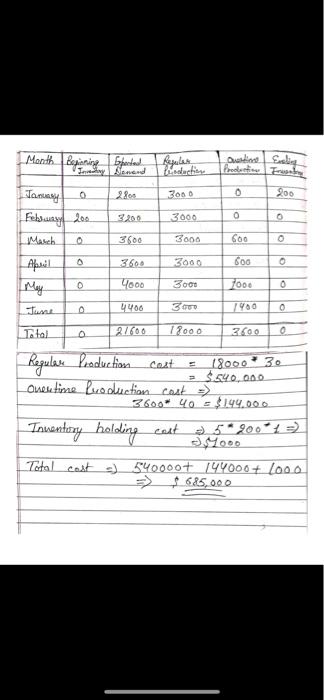 Month | Beginning Inventory | Expected Demand | Regular Production | Overtime Production | Ending Inventory
January | 0 | 2800 | 3000 | 0 | 200
February | 200 | 3200 | 3000 | 0 | 0
March | 0 | 3600 | 3000 | 600 | 0
April | 0 | 3600 | 3000 | 600 | 0
May | 0 | 4000 | 3000 | 1000 | 0
June | 0 | 4400 | 3000 | 1400 | 0
Total | 0 | 21600 | 18000 | 3600 | 0
Regular Production cost = 18000 * 30
= $540,000
Overtime Production cost =>
3600* 40 = $144,000
Inventory holding cost => 5 * 200 * 1 =>
=> $1000
Total cost => 540000+ 144000+ 1000
=> $ 685,000